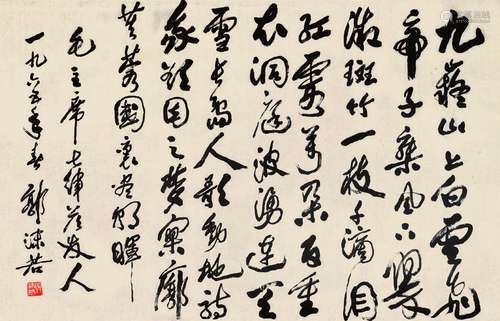 九嶷山上白雲飛
帝子乘風下翠
微斑竹一枝千滴泪
红霞萬朵百重
衣洞庭波湧連天
雪長島人歌動地詩
我欲因之夢寥廓
芙蓉國裏盡朝暉
毛主席七律答友人
一九六五年春 郭沫若